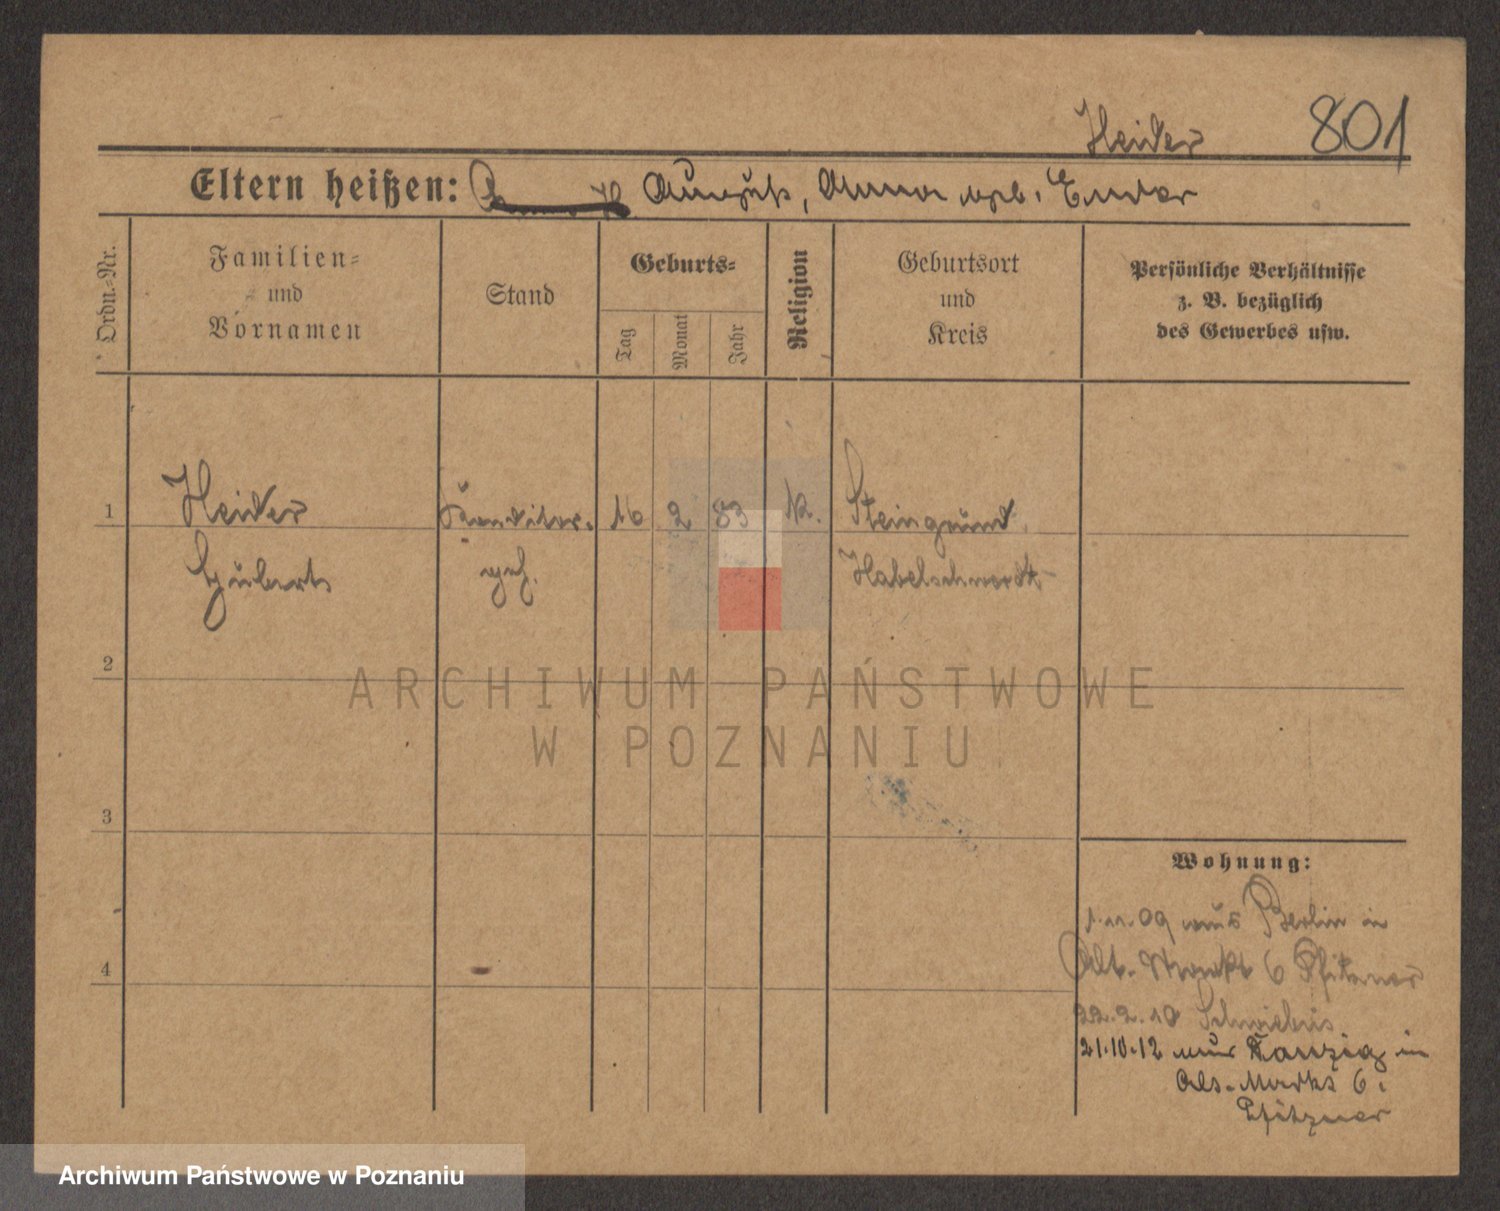 Heider 801
Eltern heißen: August, Anna geb. Ender
Ordn.-Nr.
Familien- und Vornamen
Stand
Geburts-
Tag
Monat
Jahr
Religion
Geburtsort und Kreis
Persönliche Verhältnisse
z. B. bezüglich
des Gewerbes usw.
1 Heider Konditor. 16 2 83 k. Steingrund
Hubert geh. Habelschwerdt
2
3
4
Wohnung:
1.11.09 aus Berlin in
Alt. Markt 6 Pfitzner
22.2.10 Schwiebus
21.10.12 aus Danzig in
Alt. Markt 6.
Pfitzner
ARCHIWUM PAŃSTWOWE
W POZNANIU
Archiwum Państwowe w Poznaniu